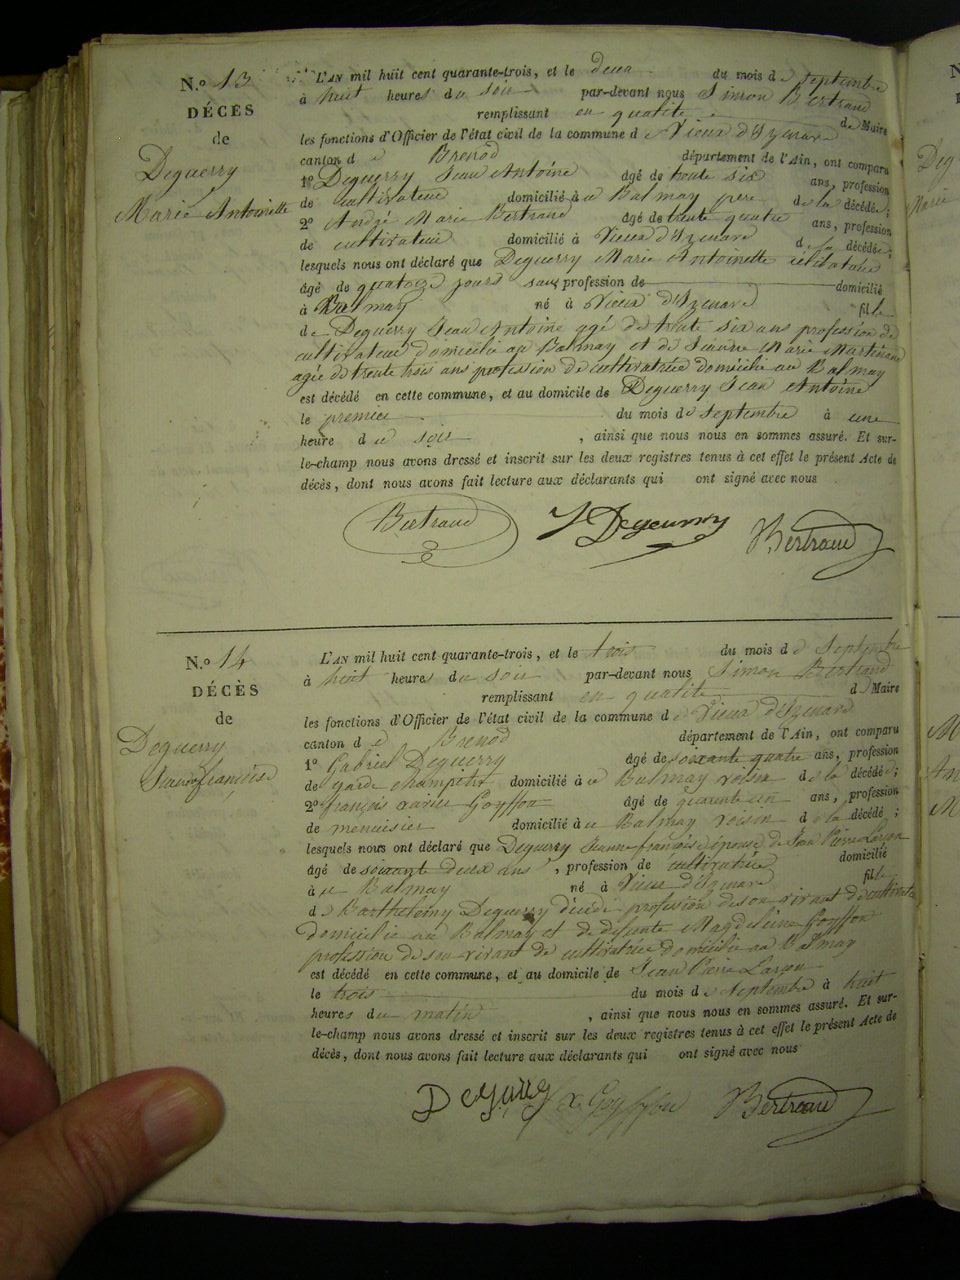 N.º 13
DÉCÈS
de
Deguerry
Marie Antoinette
L'AN mil huit cent quarante-trois, et le deux du mois de septembre
à huit heures du soir par-devant nous Simon Bertrand
remplissant en qualité de Maire
les fonctions d'Officier de l'état civil de la commune de Vieux d'Izenave
canton de Brenod département de l'Ain, ont comparu
1º Deguerry Jean Antoine âgé de trente six ans, profession
de cultivateur domicilié à au Balmay père de la décédée;
2º André Marie Bertrand âgé de trente quatre ans, profession
de cultivateur domicilié à Vieux d'Izenave de la décédée;
lesquels nous ont déclaré que Deguerry Marie Antoinette célibataire
âgé de quatorze jours sans profession de domicilié
à Balmay né à Vieux d'Izenave fille
de Deguerry Jean Antoine agé de trente six ans profession de
cultivateur domicilié au Balmay et de Jeanne Marie
agée de trente trois ans profession de cultivatrice domiciliée au Balmay
est décédé en cette commune, et au domicile de Deguerry Jean Antoine
le premier du mois de septembre à une
heure du soir , ainsi que nous nous en sommes assuré. Et sur-
le-champ nous avons dressé et inscrit sur les deux registres tenus à cet effet le présent Acte de
décès, dont nous avons fait lecture aux déclarants qui ont signé avec nous
Bertrand J Deguerry Bertrand
N.º 14
DÉCÈS
de
Deguerry
Jeanne Françoise
L'AN mil huit cent quarante-trois, et le trois du mois de Septembre
à huit heures du soir par-devant nous Simon Bertrand
remplissant en qualité de Maire
les fonctions d'Officier de l'état civil de la commune de Vieux d'Izenave
canton de Brenod département de l'Ain, ont comparu
1º Gabriel Deguerry âgé de soixante quatre ans, profession
de garde champetre domicilié à au Balmay voisin de la décédée;
2º françois xavier Goyffon âgé de quarente un ans, profession
de menuisier domicilié à au Balmay voisin de la décédé;
lesquels nous ont déclaré que Deguerry Jeanne françoise épouse de Jean Pierre Larçon
âgé de soixante deux ans , profession de cultivatrice domicilié
à au Balmay né à Vieux d'Izenave fille
de Barthelemy Deguerry décédé profession de son vivant de cultivateur
domicilié au Balmay et de defunte Magdeleine Goyffon
profession de son vivant de cultivatrice domicilié au Balmay
est décédé en cette commune, et au domicile de Jean Pierre Larçon
le trois du mois de septembre à huit
heures du matin , ainsi que nous nous en sommes assuré. Et sur-
le-champ nous avons dressé et inscrit sur les deux registres tenus à cet effet le présent Acte de
décès, dont nous avons fait lecture aux déclarants qui ont signé avec nous
Goyffon Bertrand